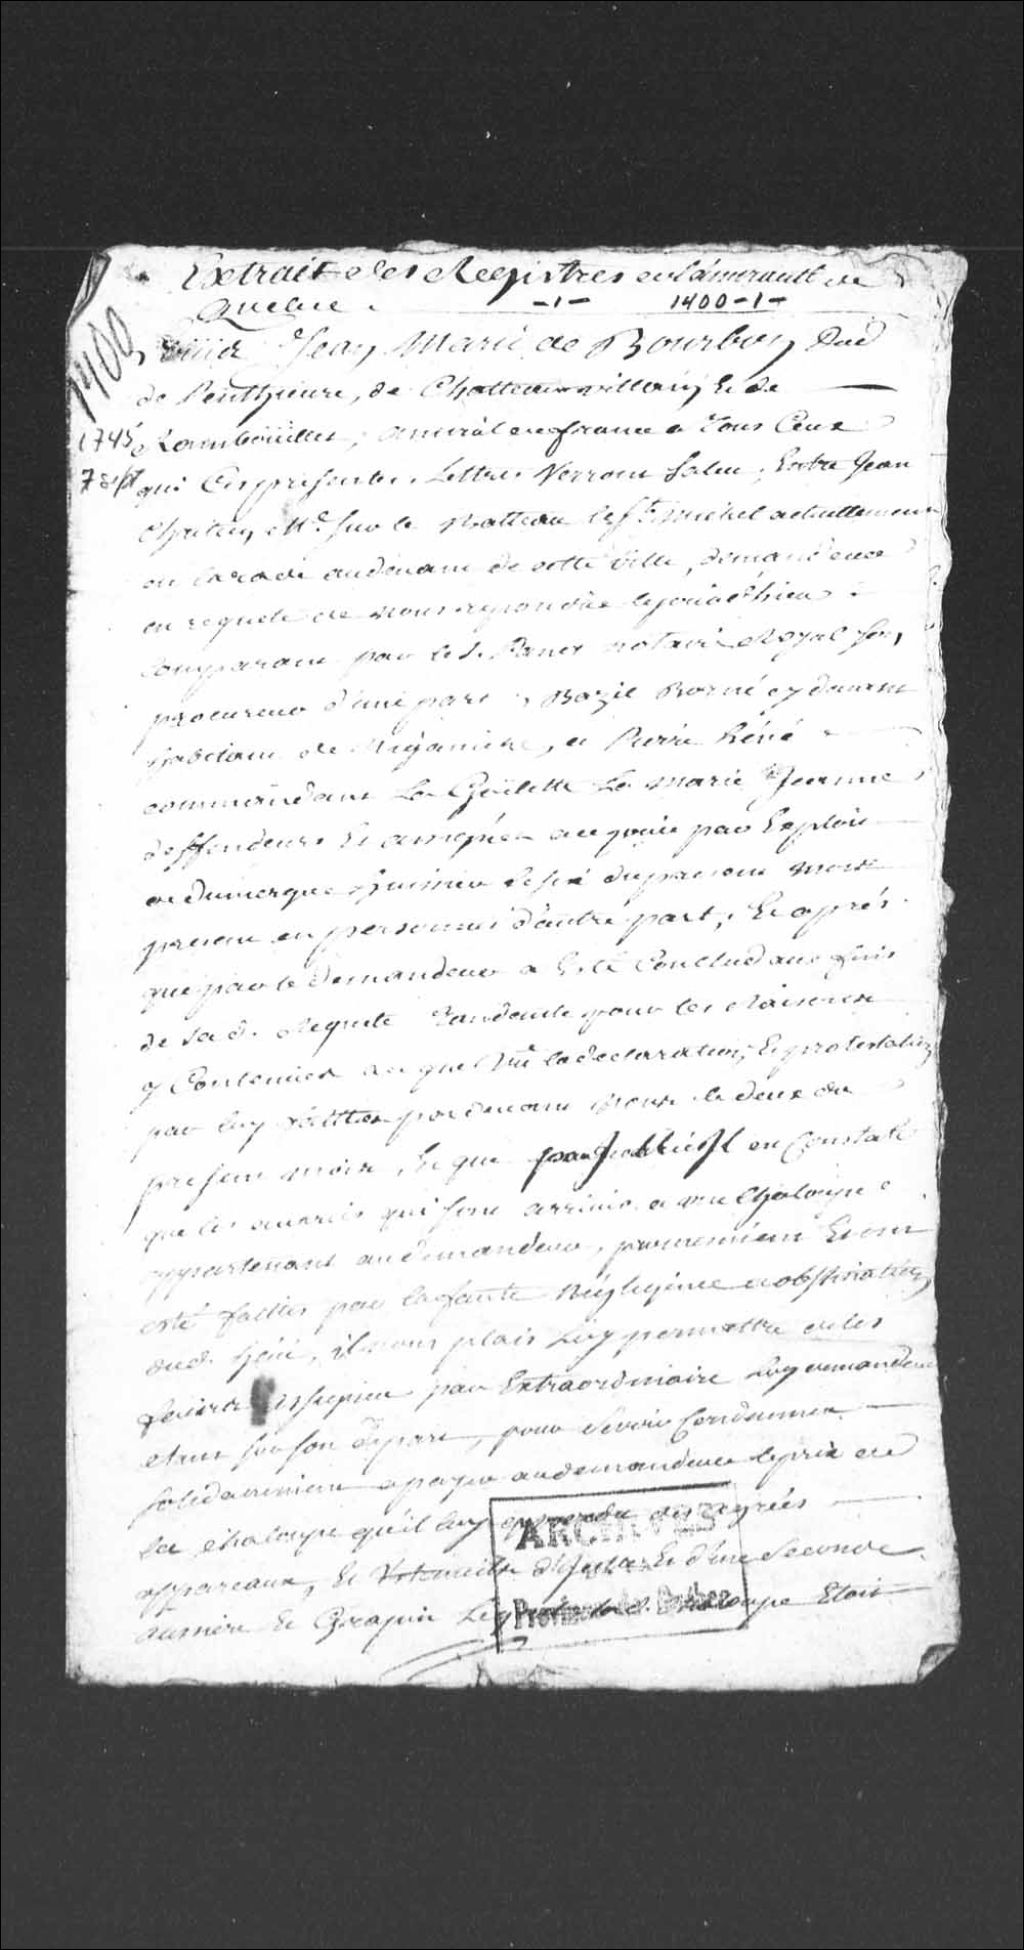 Extrait des Registres de l'amirauté de
Quebec. -1- 1400-1-
1400
Louis Jean Marie de Bourbon Duc
de Penthievre, de Chatteauvillain Et de
1745 Rambouillet, amiral de france a Tous Ceux
7 Sept qui Ces presentes Lettres Verront Salut, Entre Jean
Me. sur le Batteau le St. Michel actuellement
en la rade audevant de cette ville, demandeur
en requete de nous repondüe le jour d'hier
Comparant par le S. Panet notaire Royal son
procureur d'une part, Bazil cy devant
habitant de, et Pierre Réné
commandant La Goëlette La Marie Jeanne
deffendeurs Et assignés a ce jour par Exploit
de huissier du present mois
present en personnes d'autre part, Et après
que par le demandeur a Esté Conclud aux fins
de sa d. Requete Tandante pour les Raisons
y Contenües a ce que Vû la declaration, Et protestation
par luy faittes pardevant nous le deux du
present mois, Et que il en Constate
que les avaries qui sont arrivées a une Chaloupe
appartenant au demandeur, proviennent Et ont
esté faittes par la faute Négligence et obstination
dud. Réné, il nous plais Luy permettre de les
faire par Extraordinaire Luy demandeur
etant sur son départ, pour Se voir Condamner
Solidairement a payer au demandeur le prix de
la chaloupe qu'il luy ses agrées
apparaux, Et d'Icelle Et d'une Seconde
Et Grapin chaloupe Etoit
ARCHIVES
Province de Québec